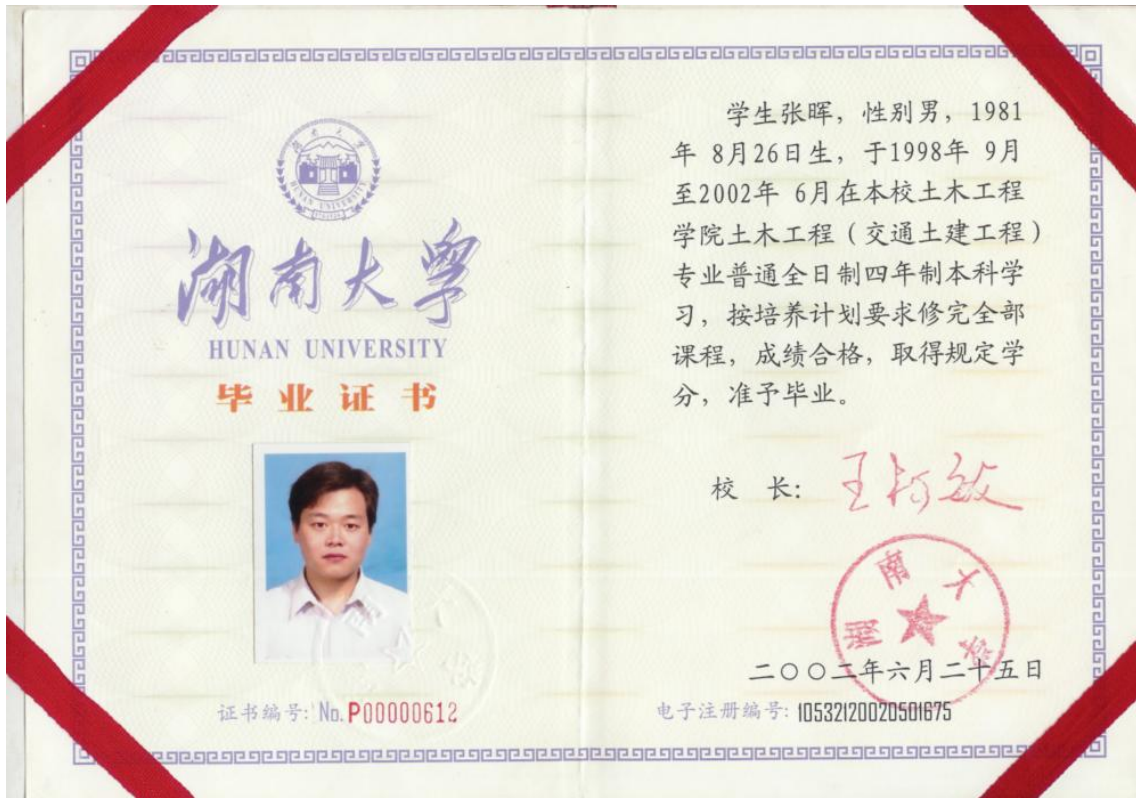 湖南大学
HUNAN UNIVERSITY
湖南大学
HUNAN UNIVERSITY
毕业证书
证书编号: No. P00000612
学生张晖，性别男，1981
年 8月26日生，于1998年 9月
至2002年 6月在本校土木工程
学院土木工程（交通土建工程）
专业普通全日制四年制本科学
习，按培养计划要求修完全部
课程，成绩合格，取得规定学
分，准予毕业。
校 长: 王柯敏
湖南大学
二〇〇二年六月二十五日
电子注册编号: 10532120020501675